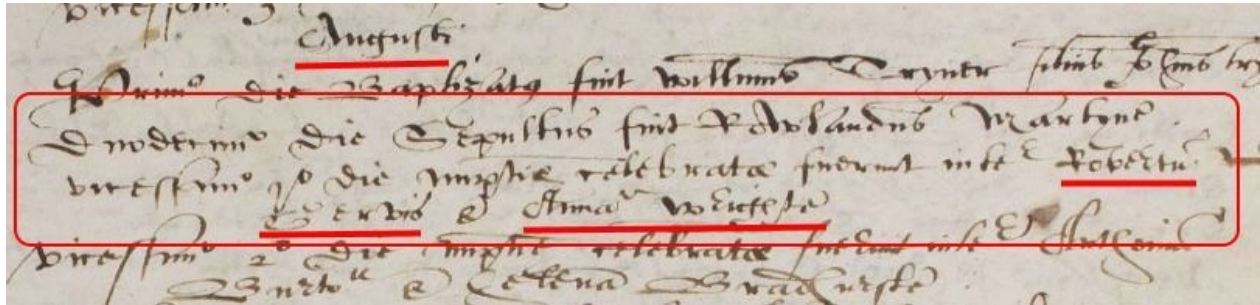 Augusti
Primo die Baptizatus fuit Willimus Tryner filius
Duodecimo die Sepultus fuit Rowlandus Martyne
vicessimo po die nuptie celebrate fuerunt inter Robertu
Jervis & Anna Wrighte
vicessimo 2o die nuptie celebrate fuerunt inter Anthoniu
Burto & Elena Bradhurste